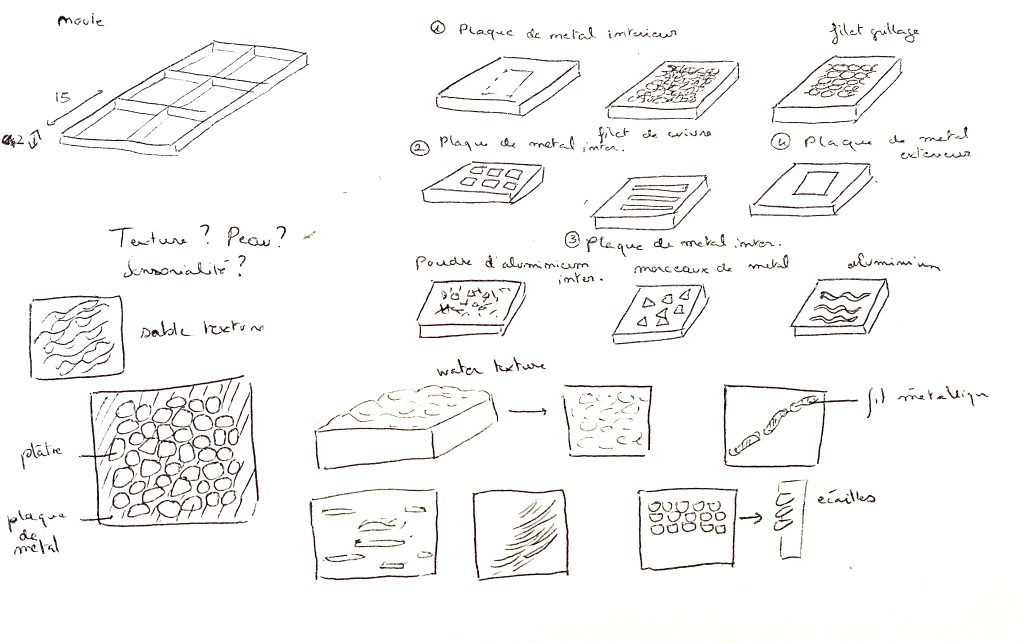 moule
15
2
① Plaque de metal interieur
filet grillage
filet de cuivre
② Plaque de metal inter.
④ Plaque de metal
exterieur
③ plaque de metal inter.
Poudre d'aluminium
inter.
morceaux de metal
aluminium
Texture ? Peau ?
Sensorialité ?
sable texture
water texture
fil métallique
plâtre
plaque
de
metal
écailles